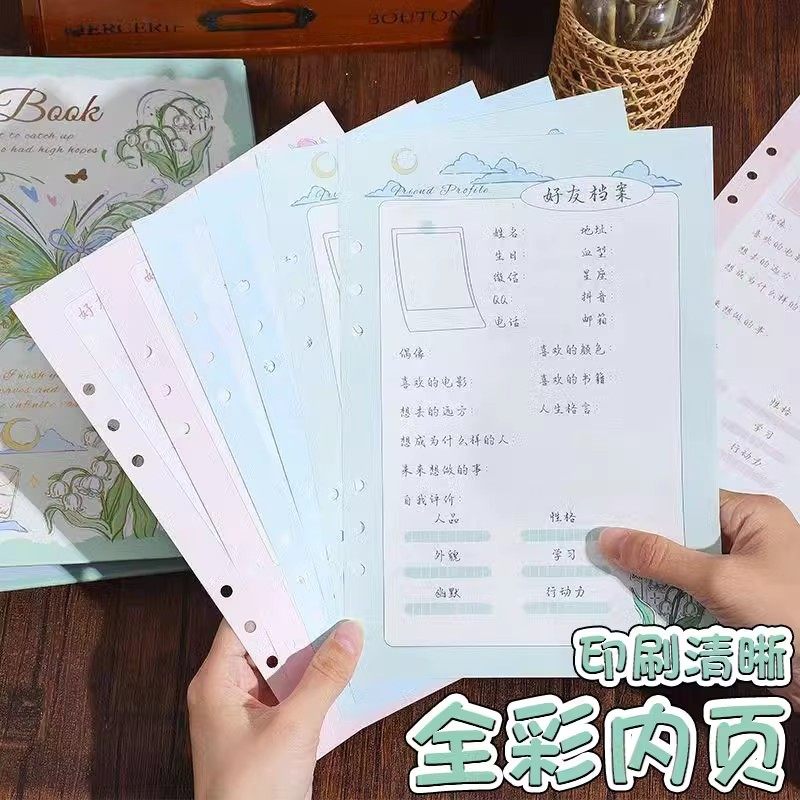 MERCERIE
BOUTON
Book
to catch up
had high hopes
I wish
waves and
infinite
好
Friend Profile
好友档案
姓名：
地址：
生日：
血型：
微信：
星座：
QQ：
抖音：
电话：
邮箱：
偶像：
喜欢的颜色：
喜欢的电影：
喜欢的书籍：
想去的远方：
人生格言：
想成为什么样的人：
未来想做的事：
自我评价：
人品
性格
外貌
学习
幽默
行动力
偶像：
喜欢的电影：
想去的远方：
想成为什么样的
未来想做的事：
性格
学习
行动力
印刷清晰
全彩内页